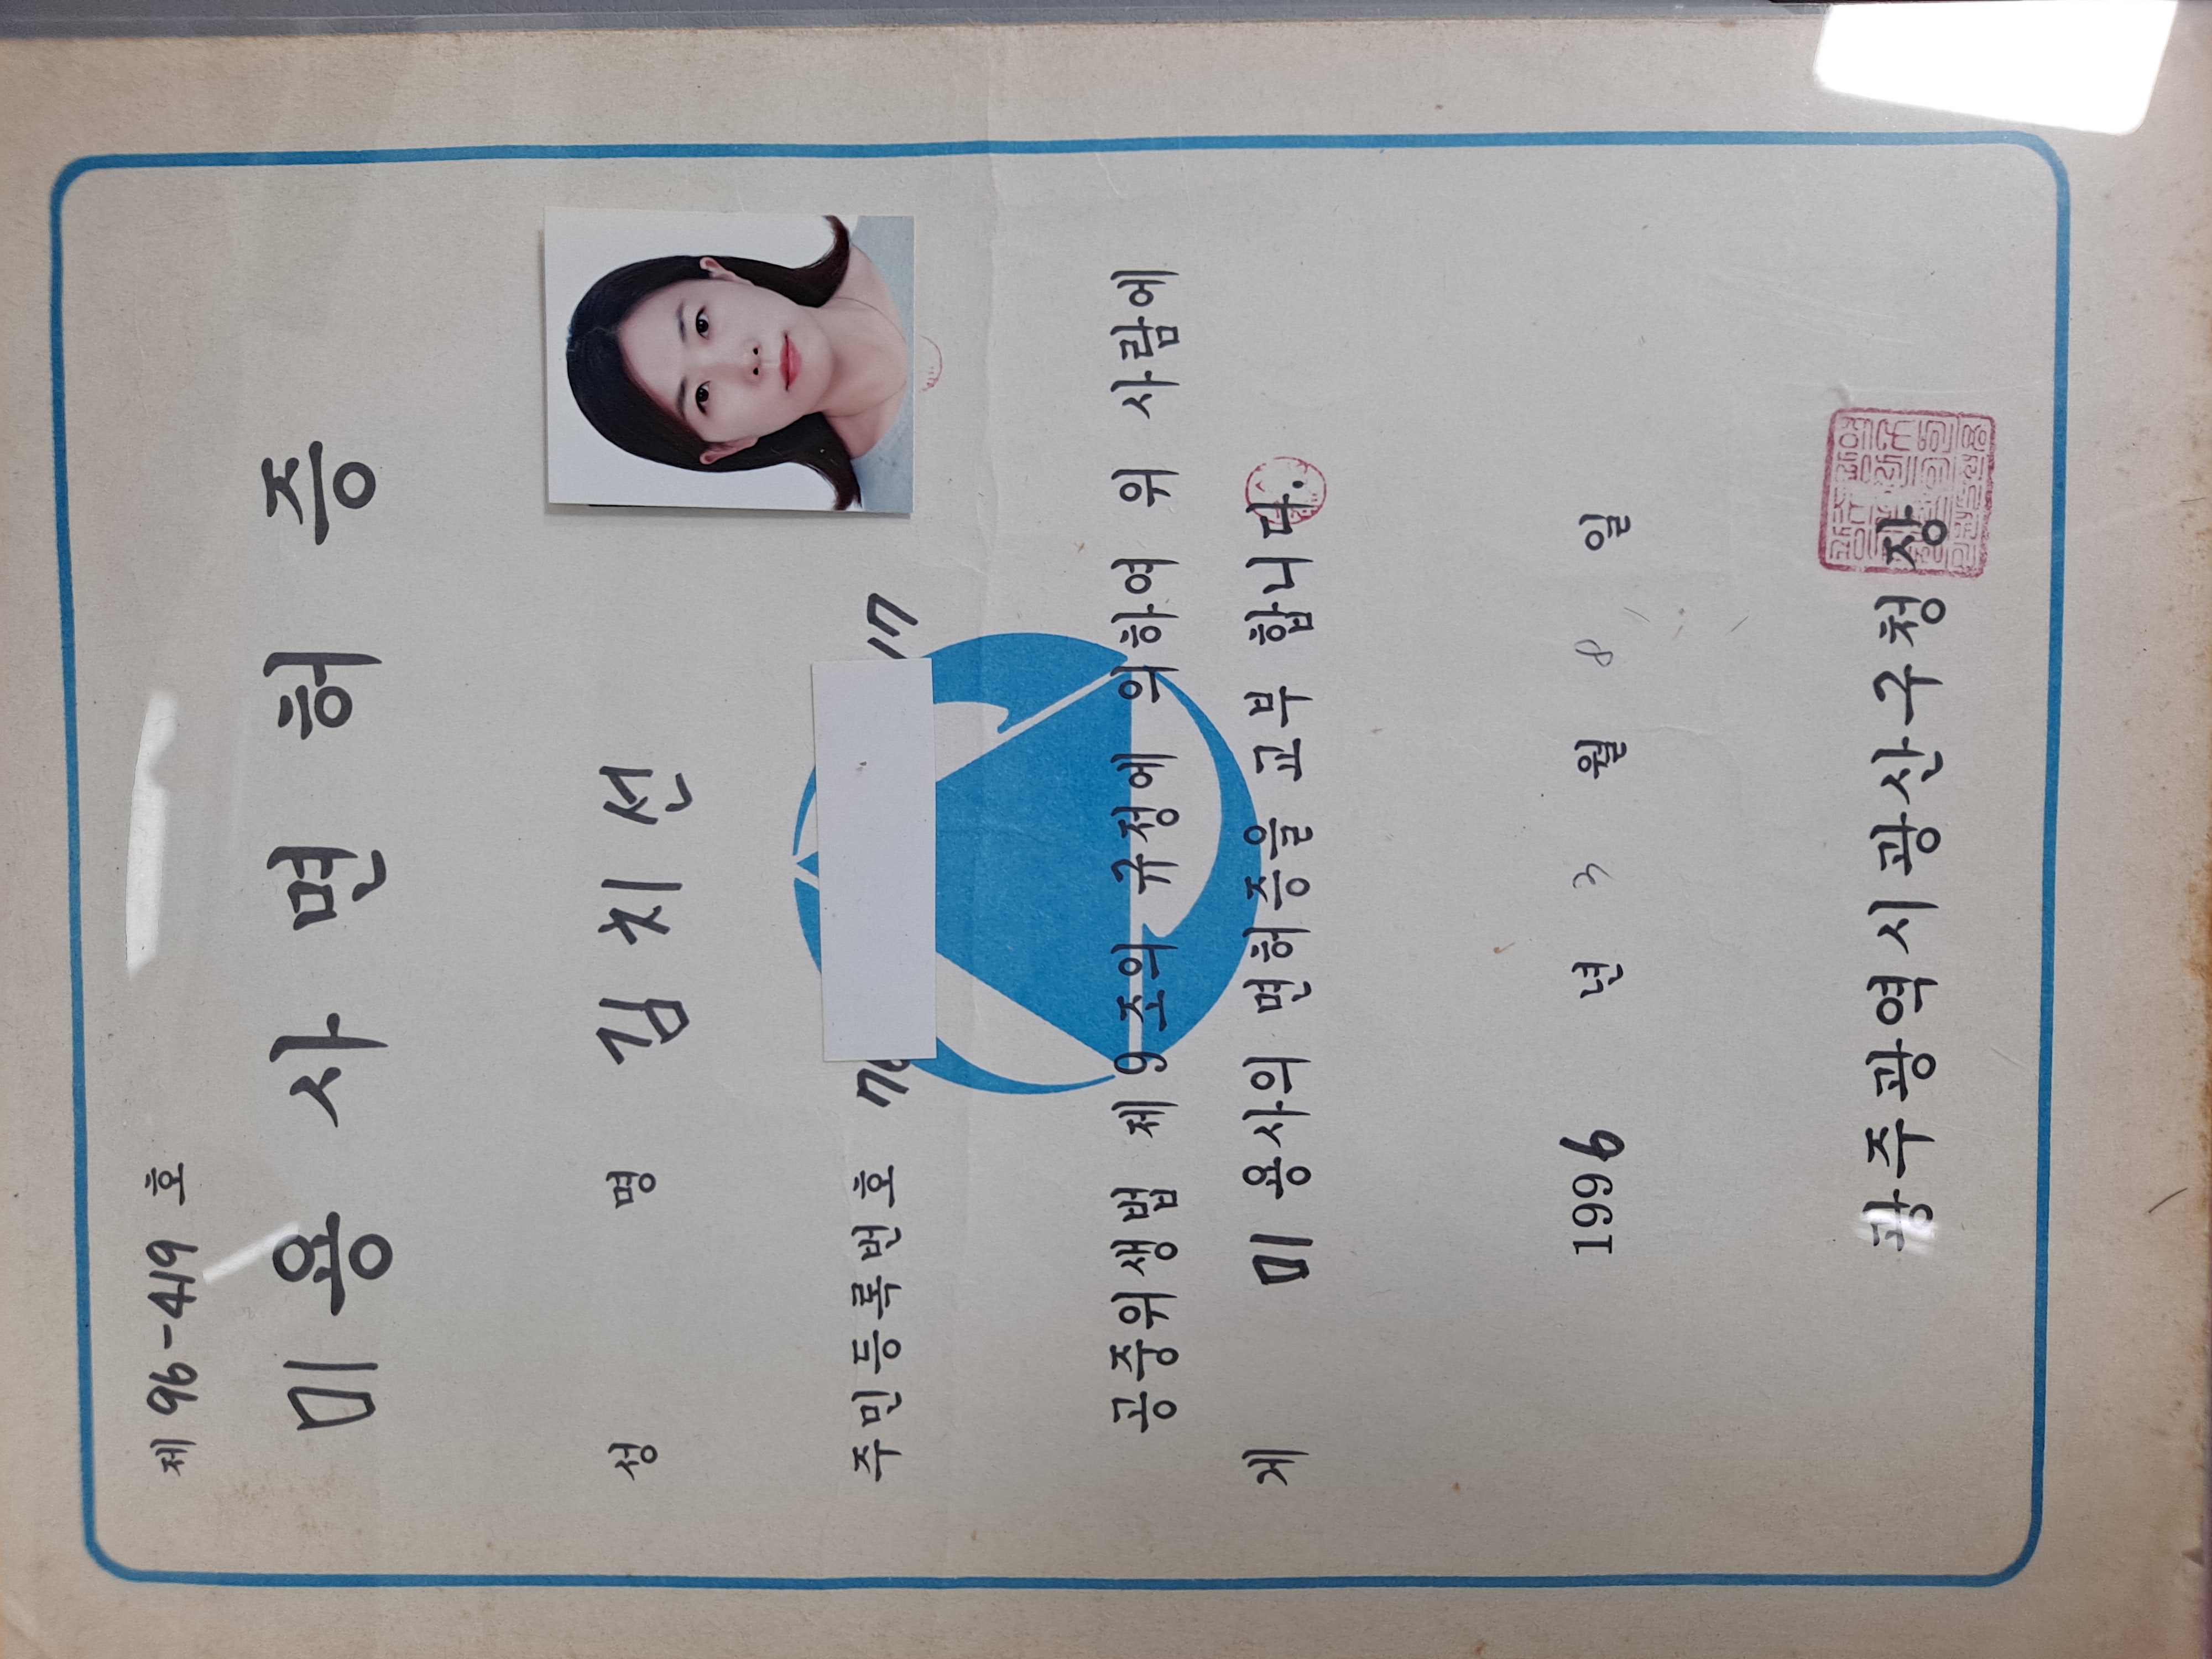 제 96-419 호
미용사면허증
성 명 김치선
주민등록번호 76 17
공중위생법 제 9 조의 규정에 의하여 위 사람에
게 미용사의 면허증을 교부 합니다.
1996 년 3 월 8 일
광주광역시광산구청장